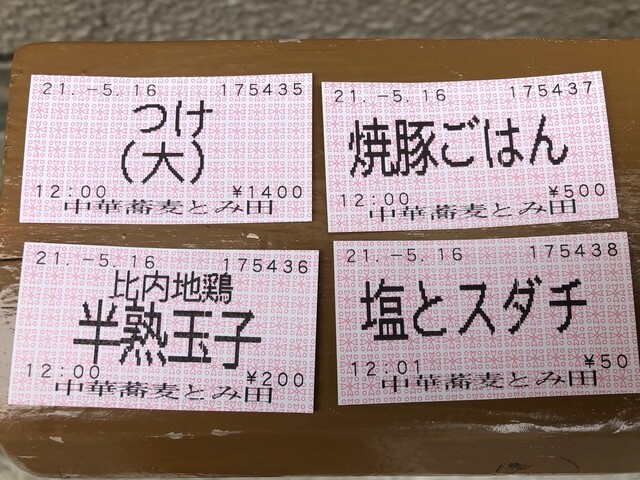 21.-5.16 175435
つけ
(大)
12:00 ¥1400
中華蕎麦とみ田
21.-5.16 175437
焼豚ごはん
12:00 ¥500
中華蕎麦とみ田
21.-5.16 175436
比内地鶏
半熟玉子
12:00 ¥200
中華蕎麦とみ田
21.-5.16 175438
塩とスダチ
12:01 ¥50
中華蕎麦とみ田